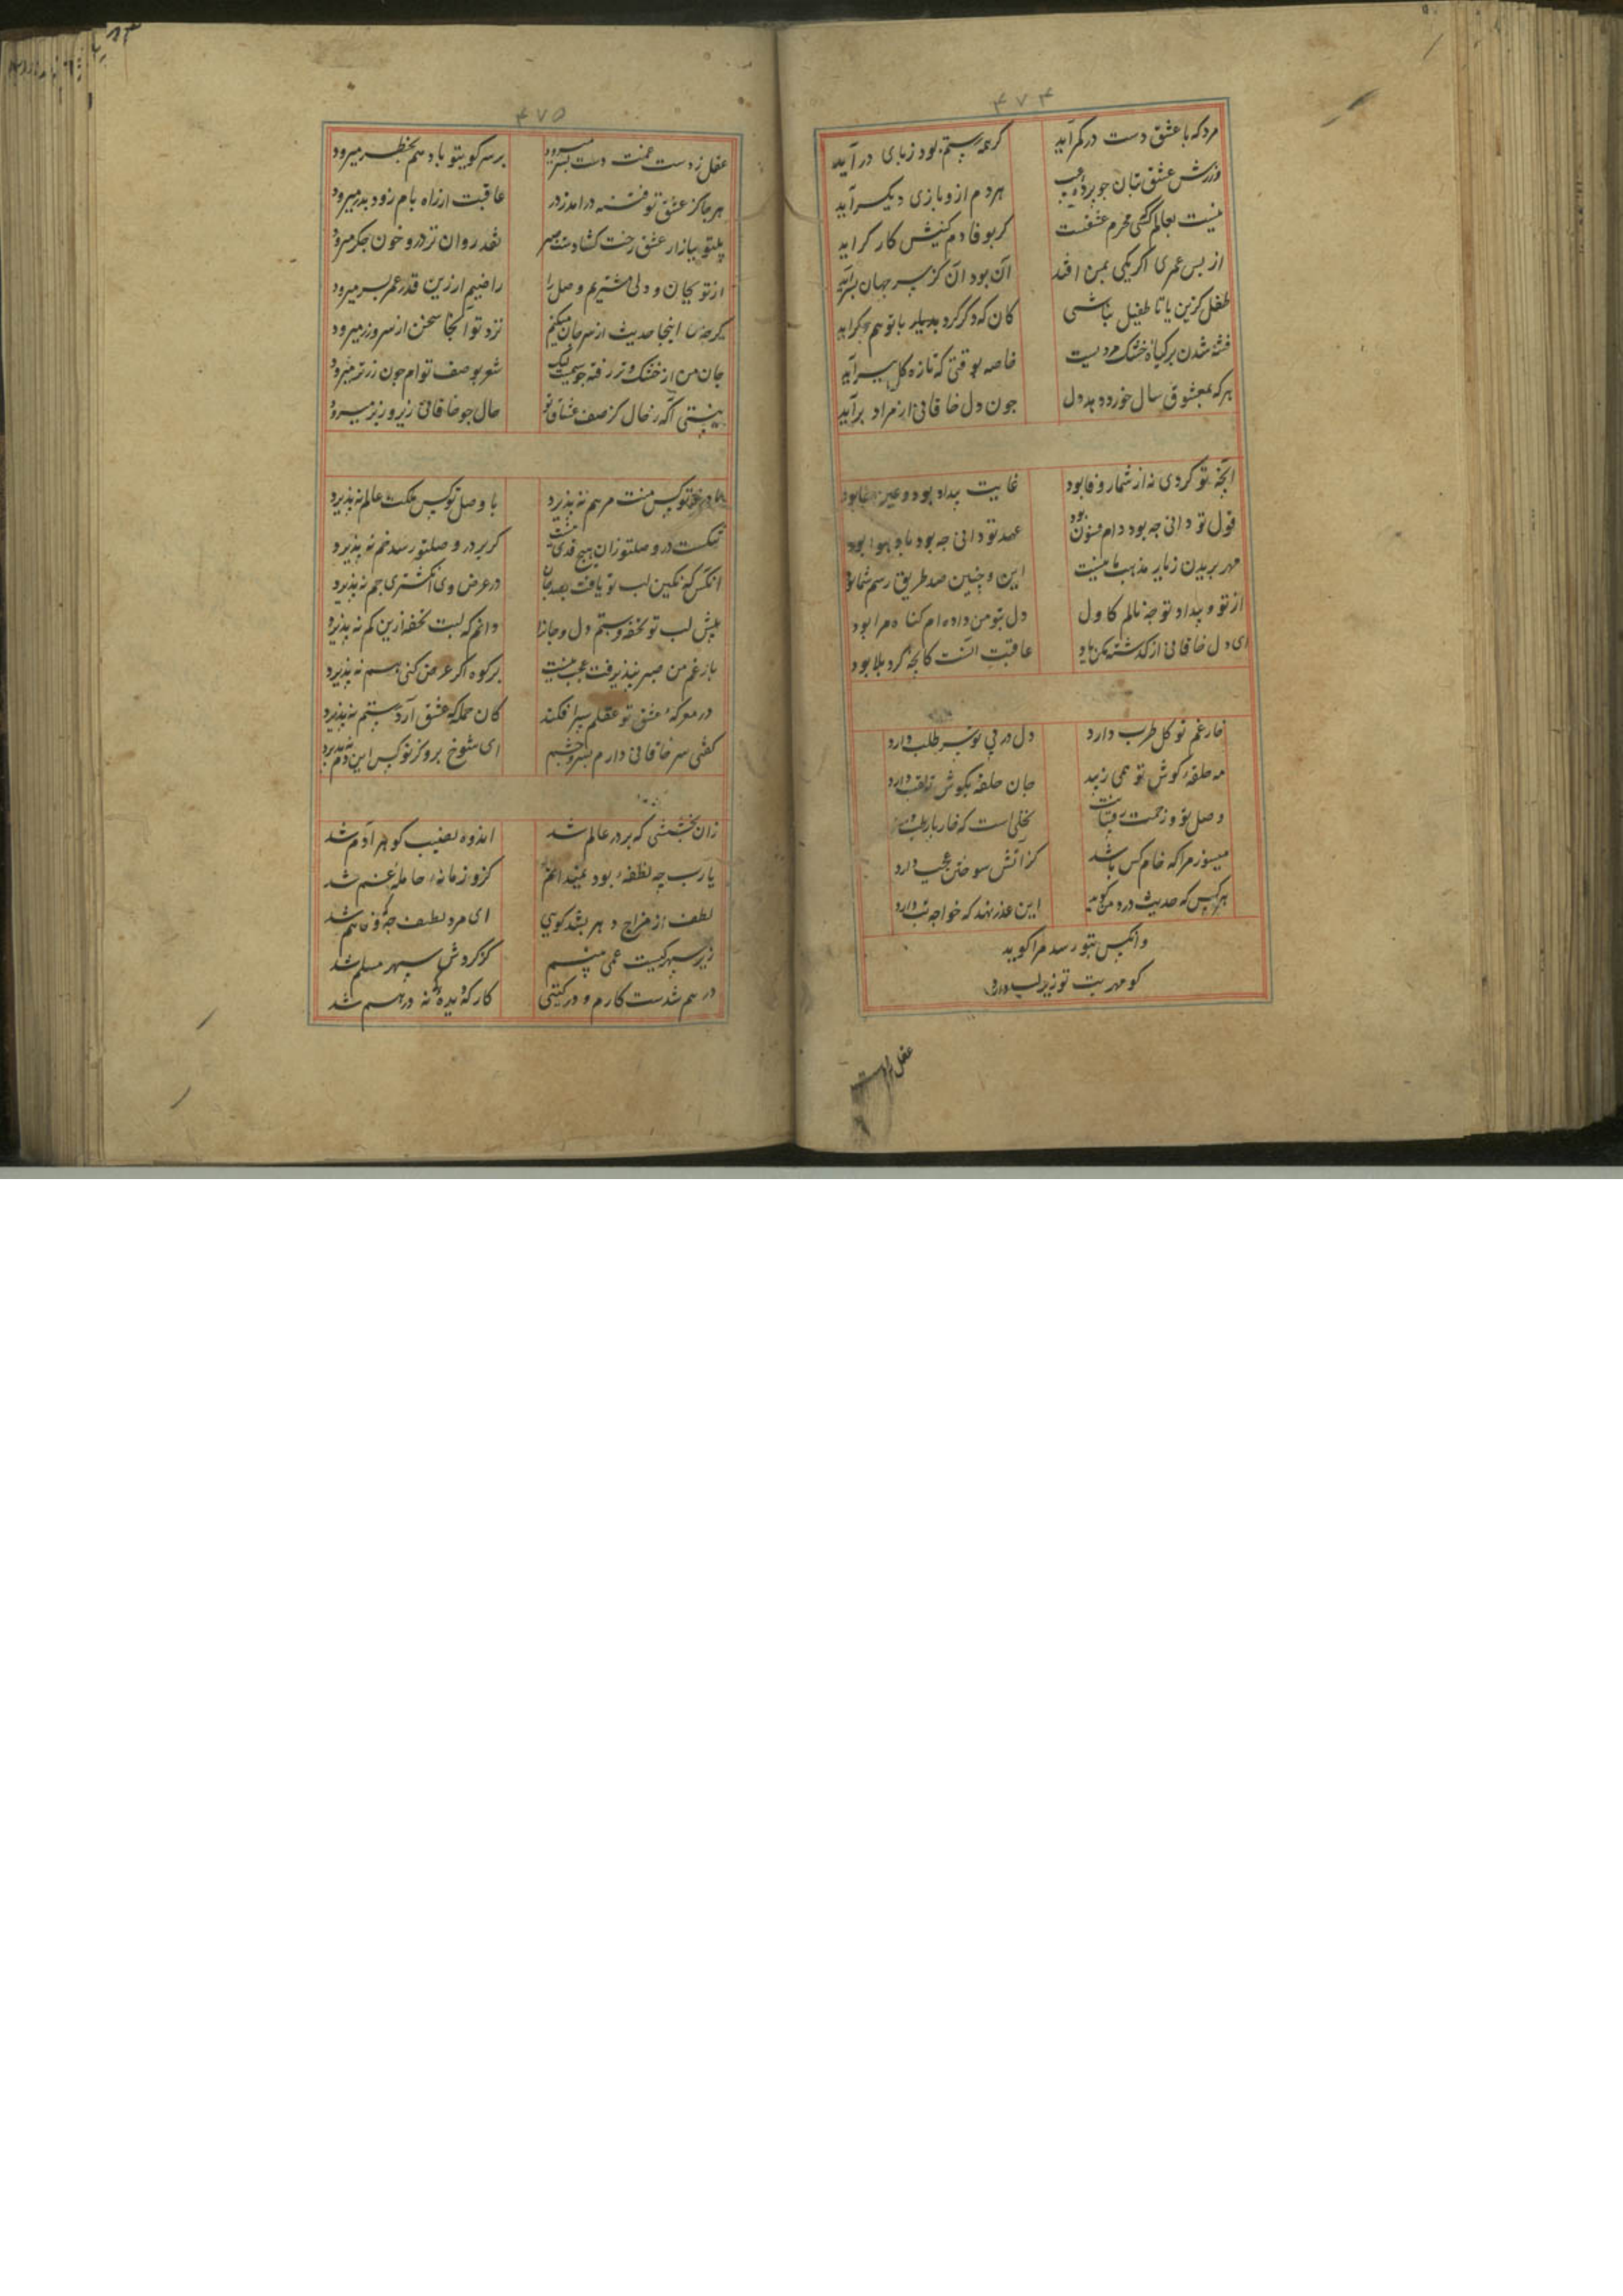 ۴۷۴
مرد که با عشق دست در کمر آید
کر همه رستم بود ز بای در آید
ورزش عشق بتان جو برده غیب
هر دم ازو بازی دیکر آید
نیست بعالم کسی محرم عشقت
کر بوفا دم کنیش کار کر آید
از بس عمری اکر یکی بمن افتد
آن بود آن کز سر جهان بسر آید
طفل کزین یا تا طفیل نباشی
کان که دکر کرد بدیلر با تو هم دکر آید
فتنه شدن بر کیاه خشک مردیست
خاصه بوقتی که تازه کل ببر آید
هر که بمعشوق سال خورده دهد دل
جون دل خاقانی از مراد برآید
آنچه تو کردی نه از شمار وفا بود
غایت بیداد بود و عین جفا بود
قول تو دانی جه بود دام فسون بود
عهد تو دانی جه بود باد هوا بود
مهر بریدن ز یار مذهب ما نیست
این و چنین صد طریق رسم شما بود
از تو و بیداد تو جه نالم کاول
دل بتو من داده ام کناه مرا بود
ای دل خاقانی از کذشته مکن یاد
عاقبت آنست کانچه کرد بلا بود
خار غم تو کل طرب دارد
دل در پی تو سر طلب دارد
مه حلقه کوش تو همی زیبد
جان حلقه بکوش زلف دارد
وصل تو و زحمت رقیبانت
نخلی است که خار با رطب دارد
میسوز مرا که خام کس باشد
کز آتش سوختن عجب دارد
هر کس که حدیث درد من کوید
این عذر نهد که خواجه تب دارد
وانکس بتو رسد مرا کوید
کو مهر بت تو زیر لب دارد
عقل ز دست
۴۷۵
عقل ز دست غمت دست بسر میرود
بر سر کویتو باد هم بخطر میرود
هر جا کز عشق تو فتنه در آمد ز در
عاقبت از راه بام زود بدر میرود
بیتو ببازار عشق رخت کشادست صبر
نقد روان تر درو خون جکر میرود
از تو بجان و دلی مشتریم وصل را
راضیم ار زین قدر عمر بسر میرود
کرچه من اینجا حدیث از سر جان میکنم
نزد تو آنجا سخن از سر و زر میرود
جان من از خشک و تر رفته جو سیمست لیک
شعر بوصف توام جون زر تر میرود
نیستی آکه ز حال کز صف عشاق تو
حال جو خاقانی زیر و زبر میرود
با درد تو کس منت مرهم نه پذیرد
با وصل تو کس مملکت عالم نه پذیرد
تنکست در وصلتو زان هیچ قدی نیست
کز بر در وصلتو رسد خم نه پذیرد
آنکس که نکین لب تو یافت بصد جان
در عرض وی انکشتری جم نه پذیرد
پیش لب تو تحفه فرستم دل و جان را
دانم که لبت تحفه ازین کم نه پذیرد
بار غم من صبر نپذیرفت عجب نیست
بر کوه اکر عرض کنی هم نه پذیرد
در معرکه عشق تو عقلم سپر افکند
کان حمله که عشق آرد رستم نه پذیرد
کفتی سر خاقانی دارم بسر و چشم
ای شوخ برو کز تو کس این دم نه پذیرد
زان بخششی که بر در عالم شد
اندوه نصیب کوهر آدم شد
یارب چه نطفه بود نمیدانم
کزو زمانه حامله غم شد
لطف از مزاج دهر بشد کویی
ای مرد لطیف چه وفا هم شد
زیر سپهر کیست نمی بینم
کز کردش سپهر مسلم شد
درهم شدست کارم و در کیتی
کار که دیده که نه درهم شد